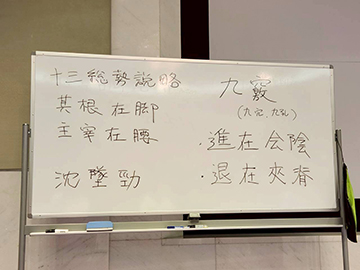 十三総勢説略
其根在脚
主宰在腰
沈墜勁
九竅
(九宮、九孔)
・進在会陰
・退在夾脊